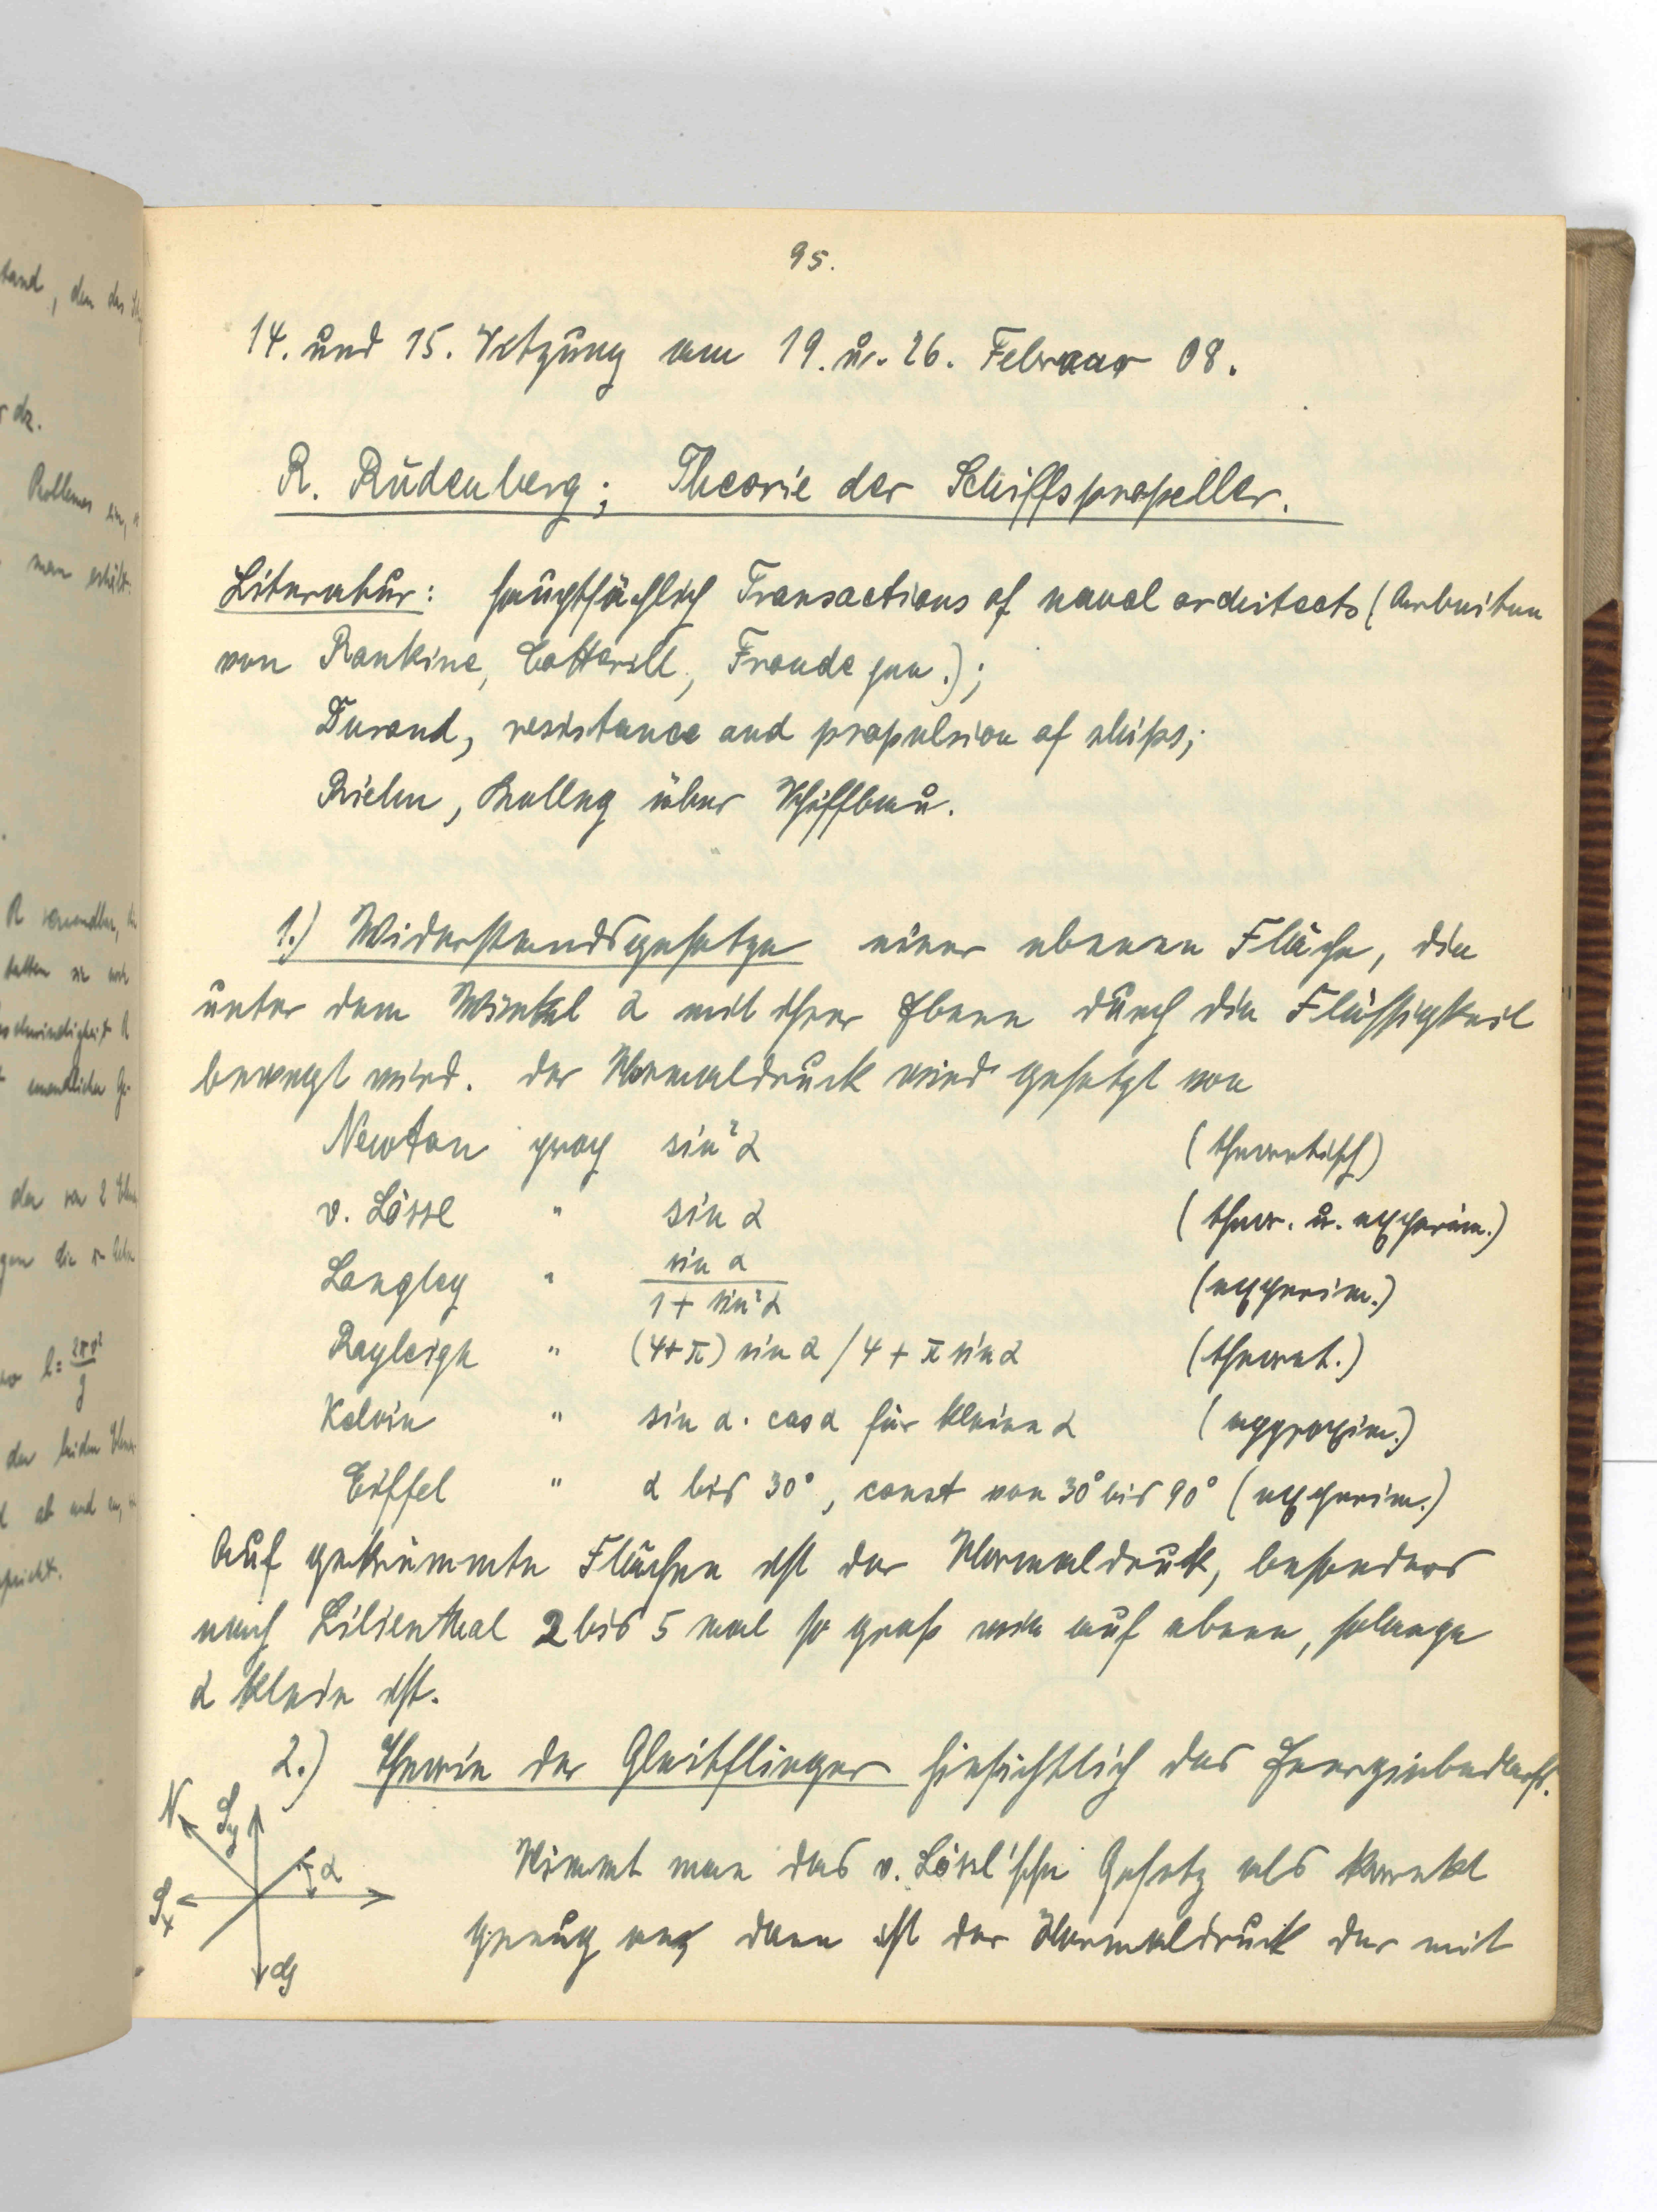 95.
14. und 15. Sitzung am 19. u. 26. Februar 08.
R. Rüdenberg; Theorie der Schiffspropeller.
Literatur: hauptsächlich Transactions of naval architects (Arbeiten
von Rankine, Cotterill, Froude jun.);
Durand, resistance and propulsion of ships;
Riehn, Kolleg über Schiffbau.
1.) Widerstandsgesetze einer ebenen Fläche, die
unter dem Winkel α mit ihrer Ebene durch die Flüssigkeit
bewegt wird. Der Normaldruck wird gesetzt von
Newton prop sin²α (theoretisch)
v. Lössl " sin α (theor. u. experim.)
Langley " sin α / 1 + sin²α (experim.)
Rayleigh " (4+π) sin α / 4 + π sin α (theoret.)
Kelvin " sin α · cos α für kleine α (approxim.)
Eiffel " α bis 30°, const von 30° bis 90° (experim.)
Auf gekrümmte Flächen ist der Normaldruck, besonders
nach Lilienthal 2 bis 5 mal so groß wie auf ebene, solange
α klein ist.
2.) Theorie der Gleitflieger hinsichtlich des Energiebedarfs.
Nimmt man das v. Lössl'sche Gesetz als korrekt
genug an, dann ist der Normaldruck der mit
N
α
G
tand, den des
dz.
Problemes
man erhält:
R verwandten,
hatten sie
R
unendlicher
den von 2
gen die
wo l = 2πv²/g
der beiden
ab und